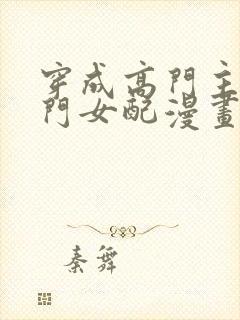 穿成高門主
門女配漫畫
秦舞